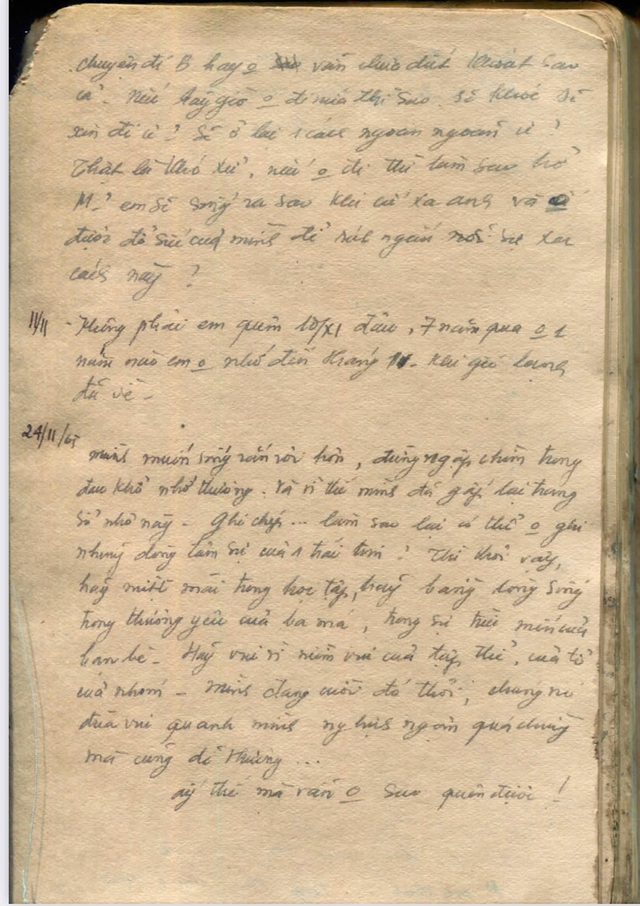 chuyện đi B hay o vẫn chưa dứt khoát sao
cả. Nếu bây giờ o đi nữa thì sao. Sẽ khóc để
xin đi ư? Sẽ ở lại 1 cách ngoan ngoãn ư?
Thật là khó xử, nếu o đi thì làm sao hở
M? em sẽ sống ra sao khi cứ xa anh và o
được đổ sức của mình để rút ngắn nỗi sự xa
cách này?
11/11 - Không phải em quên 10/XI đâu, 7 năm qua o 1
năm nào em o nhớ đến tháng 11. Khi gió lạnh
đã về -
24/11/65
mình muốn sống rắn rỏi hơn, đừng ngập chìm trong
đau khổ nhớ thương. Và vì thế mình đã gấp lại trang
sổ nhỏ này - Ghi chép... làm sao lại có thể o ghi
những dòng tâm sự của 1 trái tim! Thì thôi vậy,
hãy miệt mài trong học tập, hãy bằng lòng sống
trong thương yêu của ba má, trong sự trìu mến của
bạn bè - Hãy vui vì niềm vui của tập thể, của tổ
của nhóm - Mình đang cười đó thôi, chúng nó
đùa vui quanh mình nghịch ngợm quá chừng
mà cũng dễ thương...
ấy thế mà vẫn o sao quên được!